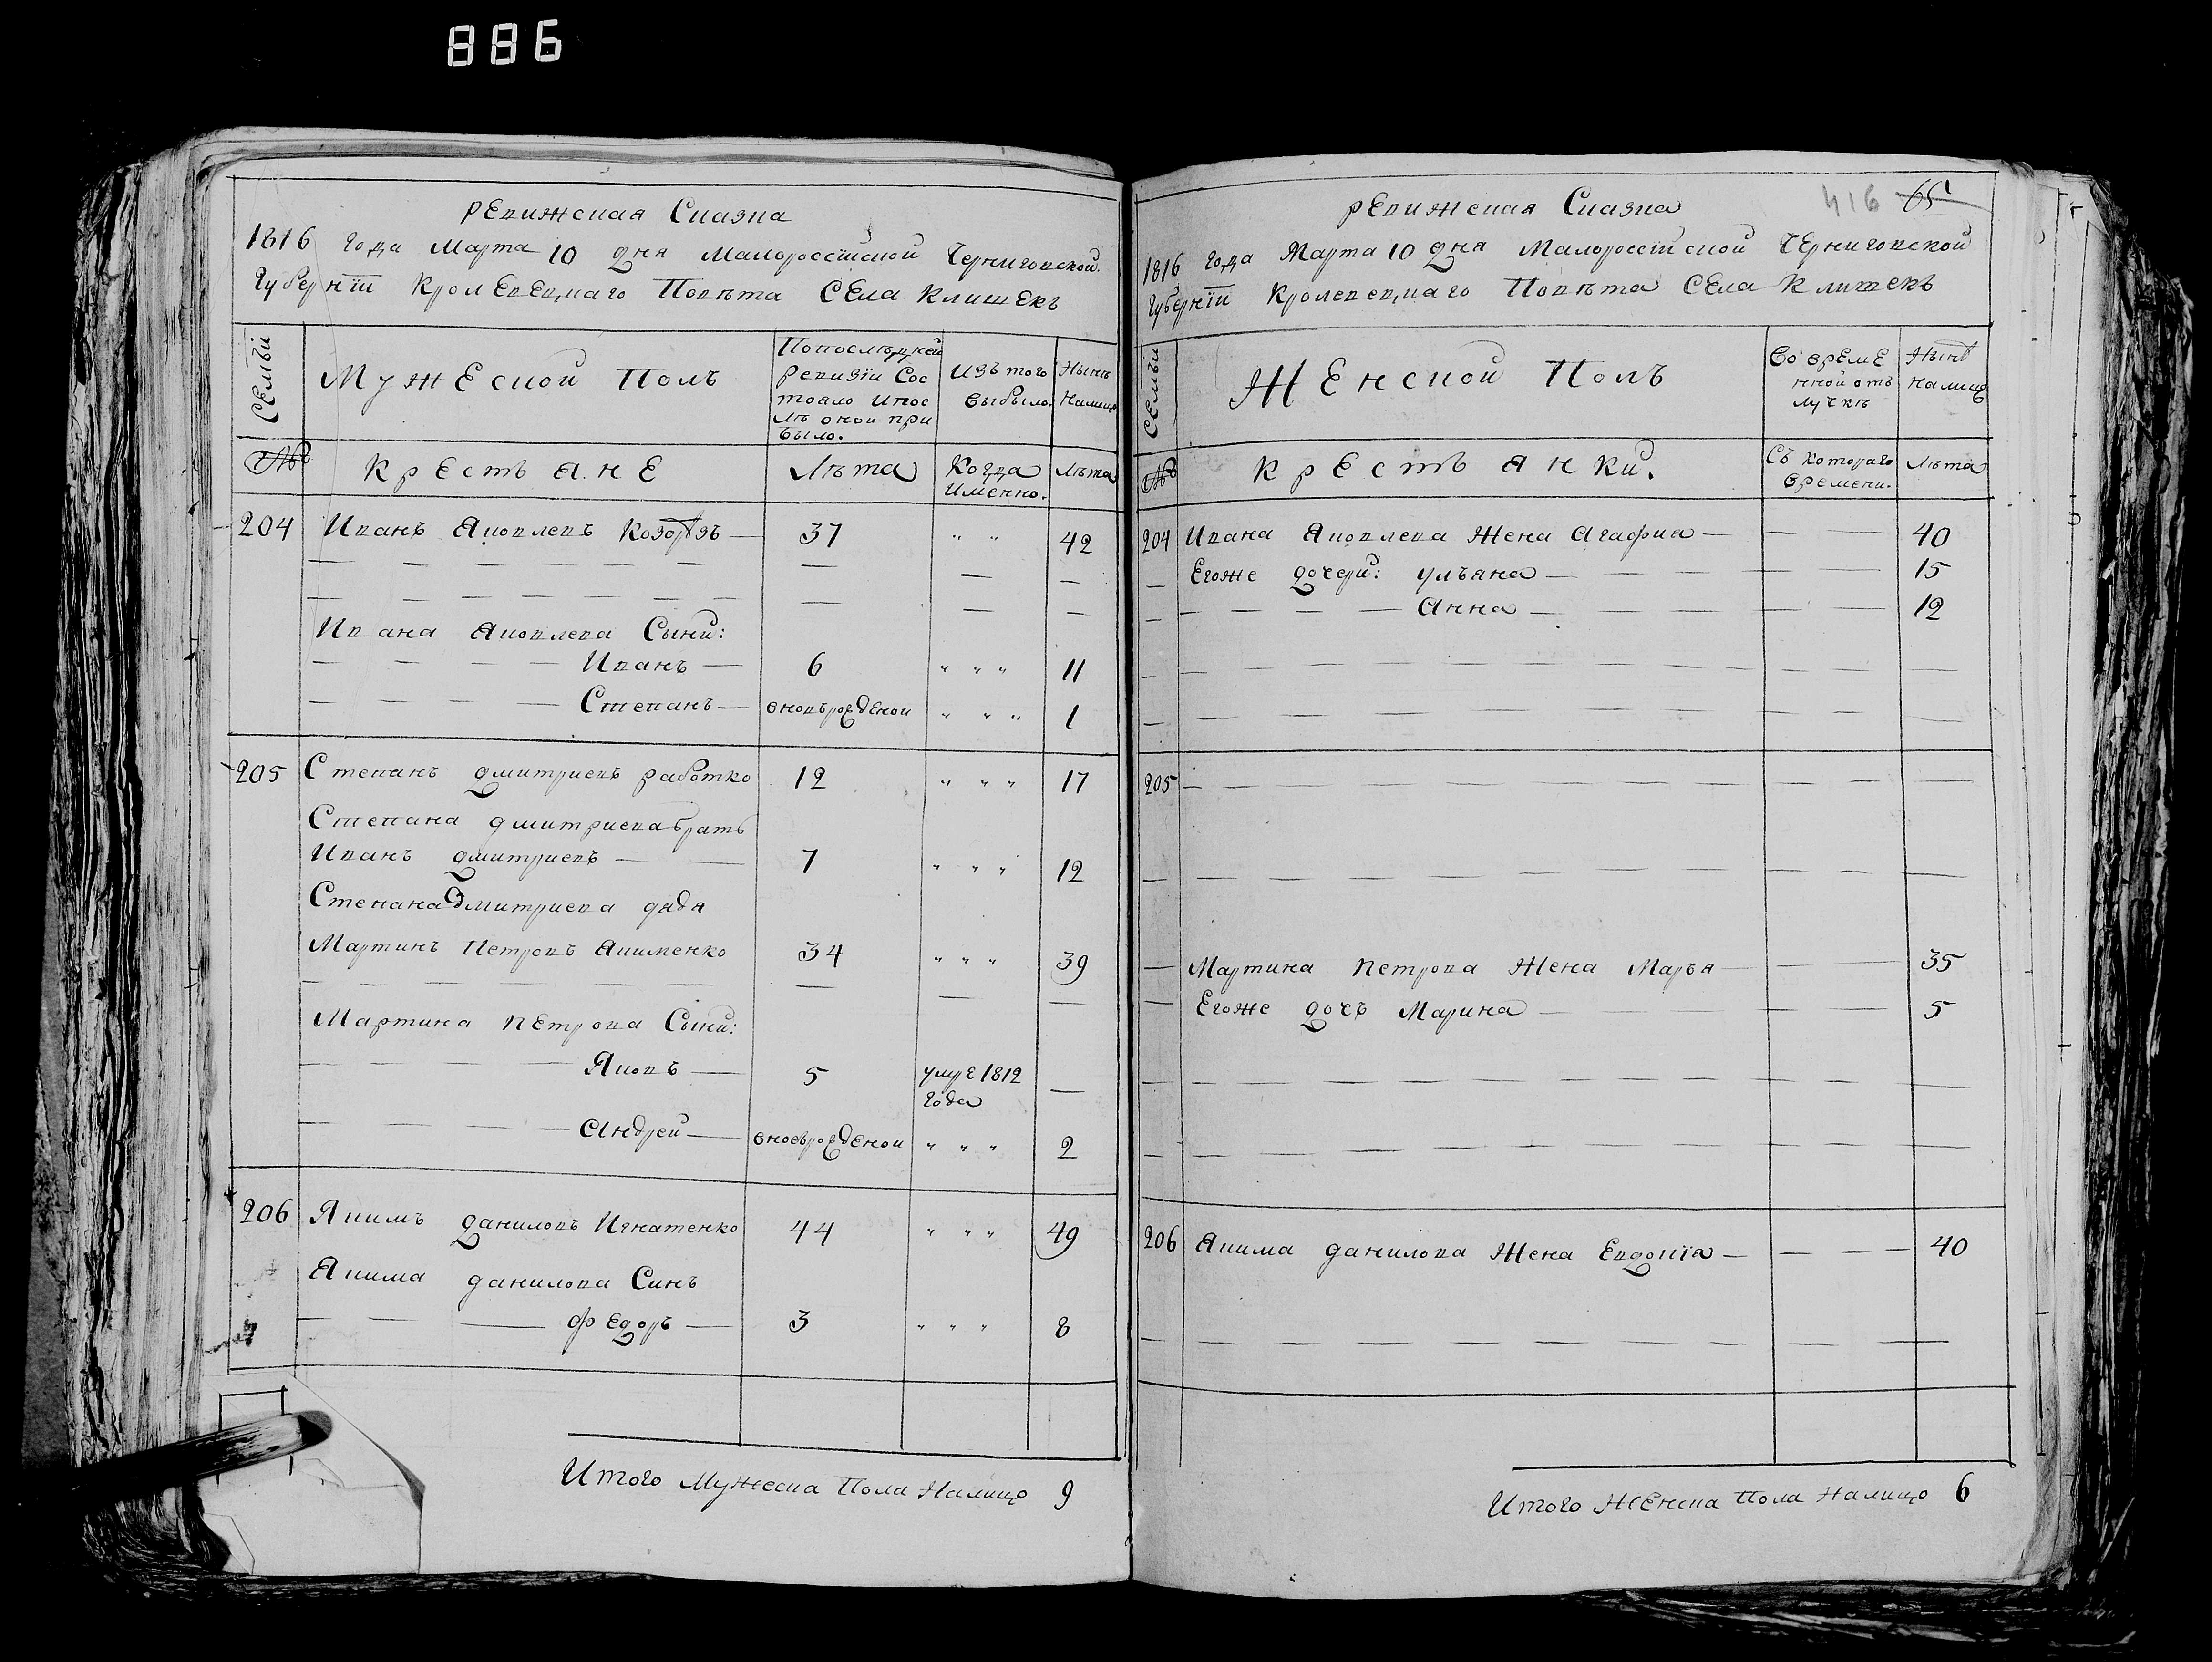 886
Ревижская Сказка
1816 года Марта 10 дня Малороссійской Черниговской
Губерніи Кролевецкаго Повѣта Села Клишекъ
Семьи
Мужеской Полъ
Попослѣдней ревизіи Состояло Ипослѣ оной прибыло.
Изъ того выбыло.
Нынѣ налицо
№
Крестьяне
Лѣта
Когда Именно.
Лѣта
204 Иванъ Яковлевъ 37 " " 42
Ивана Яковлева Сыни:
Иванъ 6 " " " 11
Степанъ вновърожденои " " " 1
205 Степанъ дмитриевъ работко 12 " " " 17
Степана дмитриева братъ
Иванъ дмитриевъ 7 " " " 12
Степана дмитриева дядя
Мартинъ Петровъ Акименко 34 " " " 39
Мартина Петрова Сыни:
Яковъ 5 умре 1812 года
Андрей вноврожденои " " " 2
206 Якимъ даниловъ Игнатенко 44 " " " 49
Якима данилова Синъ
федоръ 3 " " " 8
Итого Мужеска Пола Налицо 9
416 65
Ревижская Сказка
1816 года Марта 10 дня Малороссійской Черниговской
Губерніи Кролевецкаго Повѣта Села Клишекъ
Семьи
Женской Полъ
Во временной отлучкѣ
Нынѣ налицо
№
Крестьянки.
Съ котораго времени.
Лѣта
204 Ивана Яковлева Жена Агафия 40
Егоже дочери: ульяна 15
Анна 12
205
Мартина Петрова Жена Марья 35
Егоже дочь Марина 5
206 Якима данилова Жена Евдокія 40
Итого Женска Пола Налицо 6